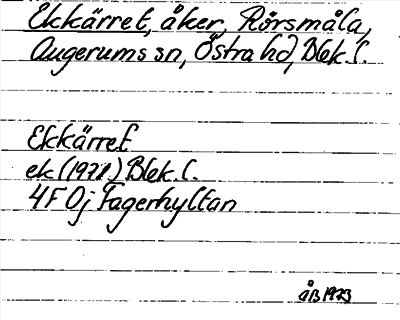 Ekkärret, åker, Rörsmåla,
Augerums sn, Östra hd, Blek. l.
Ekkärret
ek (1971) Blek. l.
4F 0j Fagerhyltan
ÅB 1973